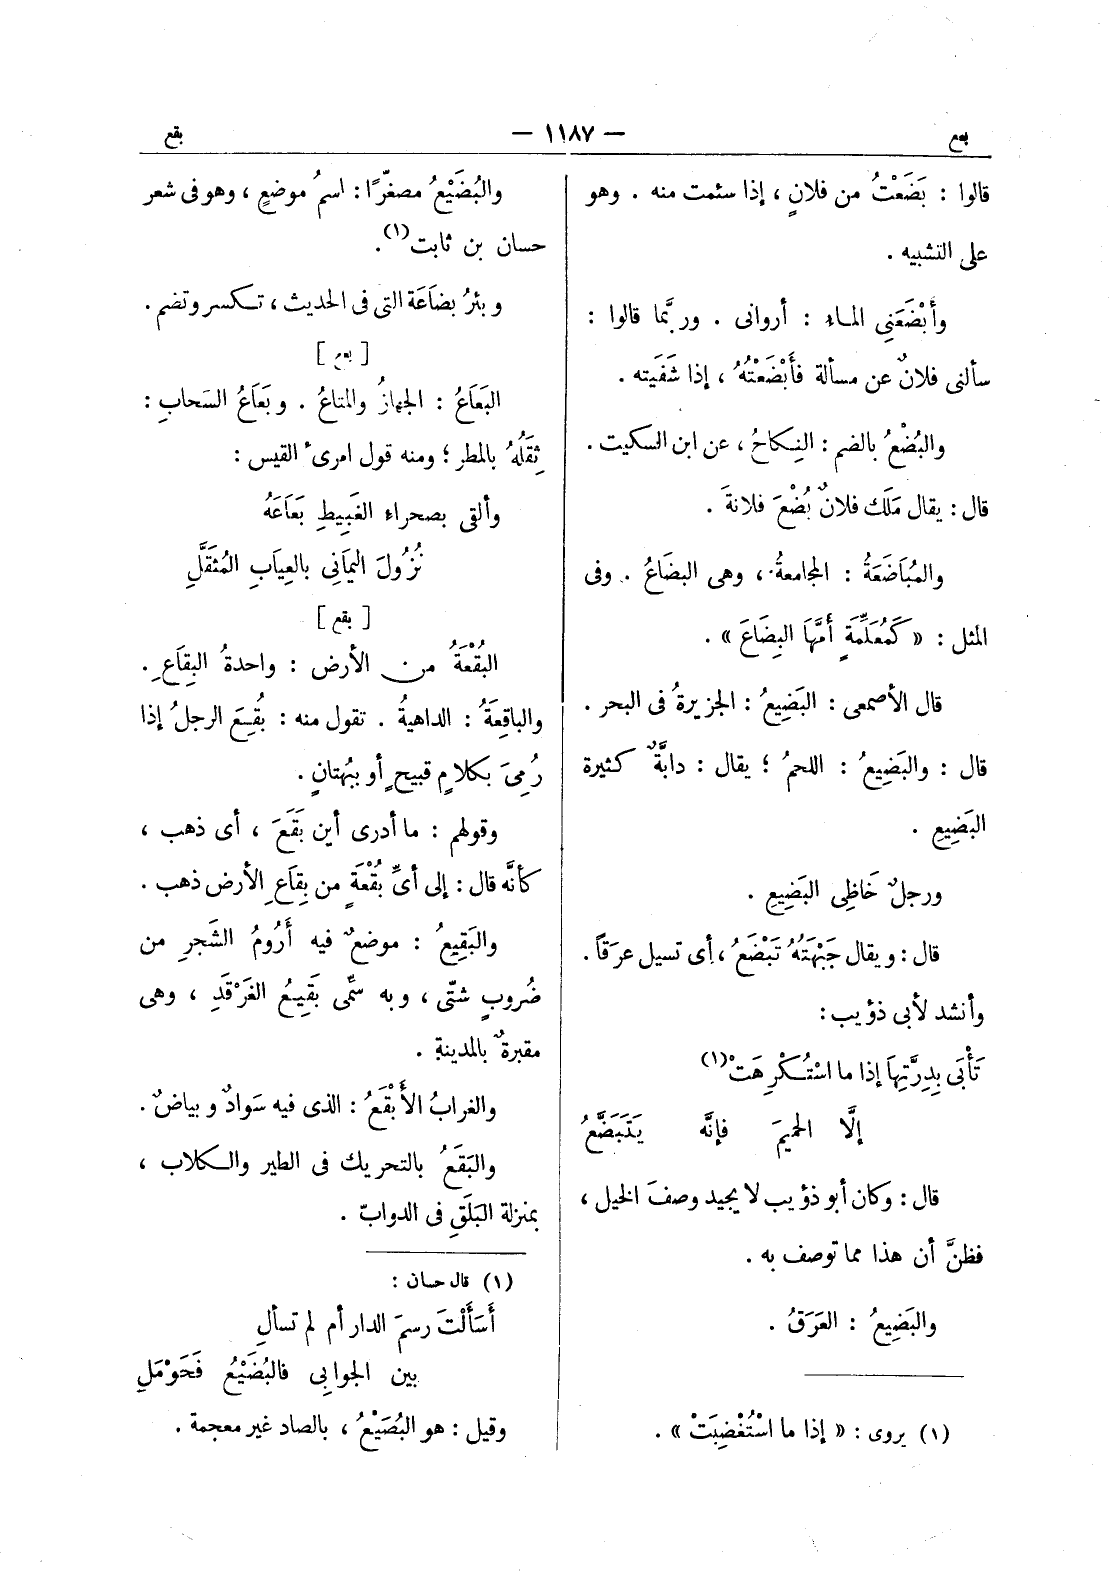 بعع
— ١١٨٧ —
بقع
قالوا : بَضَعْتُ من فلانٍ ، إذا سئمت منه . وهو
على التشبيه .
وأَبْضَعَنِى الماء : أروانى . وربَّما قالوا :
سألنى فلانٌ عن مسألة فأَبْضَعْتُهُ ، إذا شَفَيته .
والبُضْعُ بالضم : النِكاحُ ، عن ابن السكيت .
قال : يقال مَلَك فلانٌ بُضْعَ فلانةَ .
والمُبَاضَعَةُ : المجامعةُ ، وهى البضَاعُ . وفى
المثل : « كَمُعَلِّمَةٍ أمَّهَا البِضَاعَ » .
قال الأصمعى : البَضِيعُ : الجزيرةُ فى البحر .
قال : والبَضِيعُ : اللحمُ ؛ يقال : دابَّةٌ كثيرة
البَضِيعِ .
ورجلٌ خَاظِى البَضِيعِ .
قال : ويقال جَبْهَتُهُ تَبْضَعُ ، أى تسيل عرَقاً .
وأنشد لأبى ذؤيب :
تَأْبَى بِدِرَّتِهَا إذا ما اسْتُكْرِهَتْ (١)
إلَّا الحميمَ فإنَّه يَتَبَضَّعُ
قال : وكان أبو ذؤيب لا يجيد وصفَ الخيل ،
فظنَّ أن هذا مما توصف به .
والبَضِيعُ : العَرَقُ .
(١) يروى : « إذا ما اسْتُغْضِبَتْ » .
والبُضَيْعُ مصغّرًا : اسمُ موضعٍ ، وهو فى شعر
حسان بن ثابت (١).
وبئرُ بضَاعَة التى فى الحديث ، تكسر وتضم .
[ بعع ]
البَعَاعُ : الجهازُ والمتاعُ . وبَعَاعُ السَحابِ :
ثِقَلُهُ بالمطرِ ؛ ومنه قول امرئ القيس :
وألقى بصحراء الغَبِيطِ بَعَاعَهُ
نُزُولَ اليَمَانِى بالعِيَابِ المُثَقَّلِ
[ بقع ]
البُقْعَةُ من الأرض : واحدةُ البِقَاعِ .
والباقِعَةُ : الداهيةُ . تقول منه : بُقِعَ الرجلُ إذا
رُمِىَ بكلامٍ قبيحٍ أو ببُهتانٍ .
وقولهم : ما أدرى أين بَقَعَ ، أى ذهب ،
كأنَّه قال : إلى أىِّ بُقْعَةٍ من بِقَاعِ الأرض ذهب .
والبَقِيعُ : موضعٌ فيه أَرُومُ الشَجرِ من
ضُروبٍ شتّى ، وبه سمِّى بَقِيعُ الغَرْقَدِ ، وهى
مقبرةٌ بالمدينةِ .
والغرابُ الأَبْقَعُ : الذى فيه سَوادٌ وبياضٌ .
والبَقَعُ بالتحريك فى الطير والكلاب ،
بمنزلة البَلَقِ فى الدوابّ .
(١) قال حسان :
أَسَأَلْتَ رسمَ الدار أم لم تسألِ
بين الجوابِى فالبُضَيْعُ فَحَوْمَلِ
وقيل : هو البُصَيْعُ ، بالصاد غير معجمة .